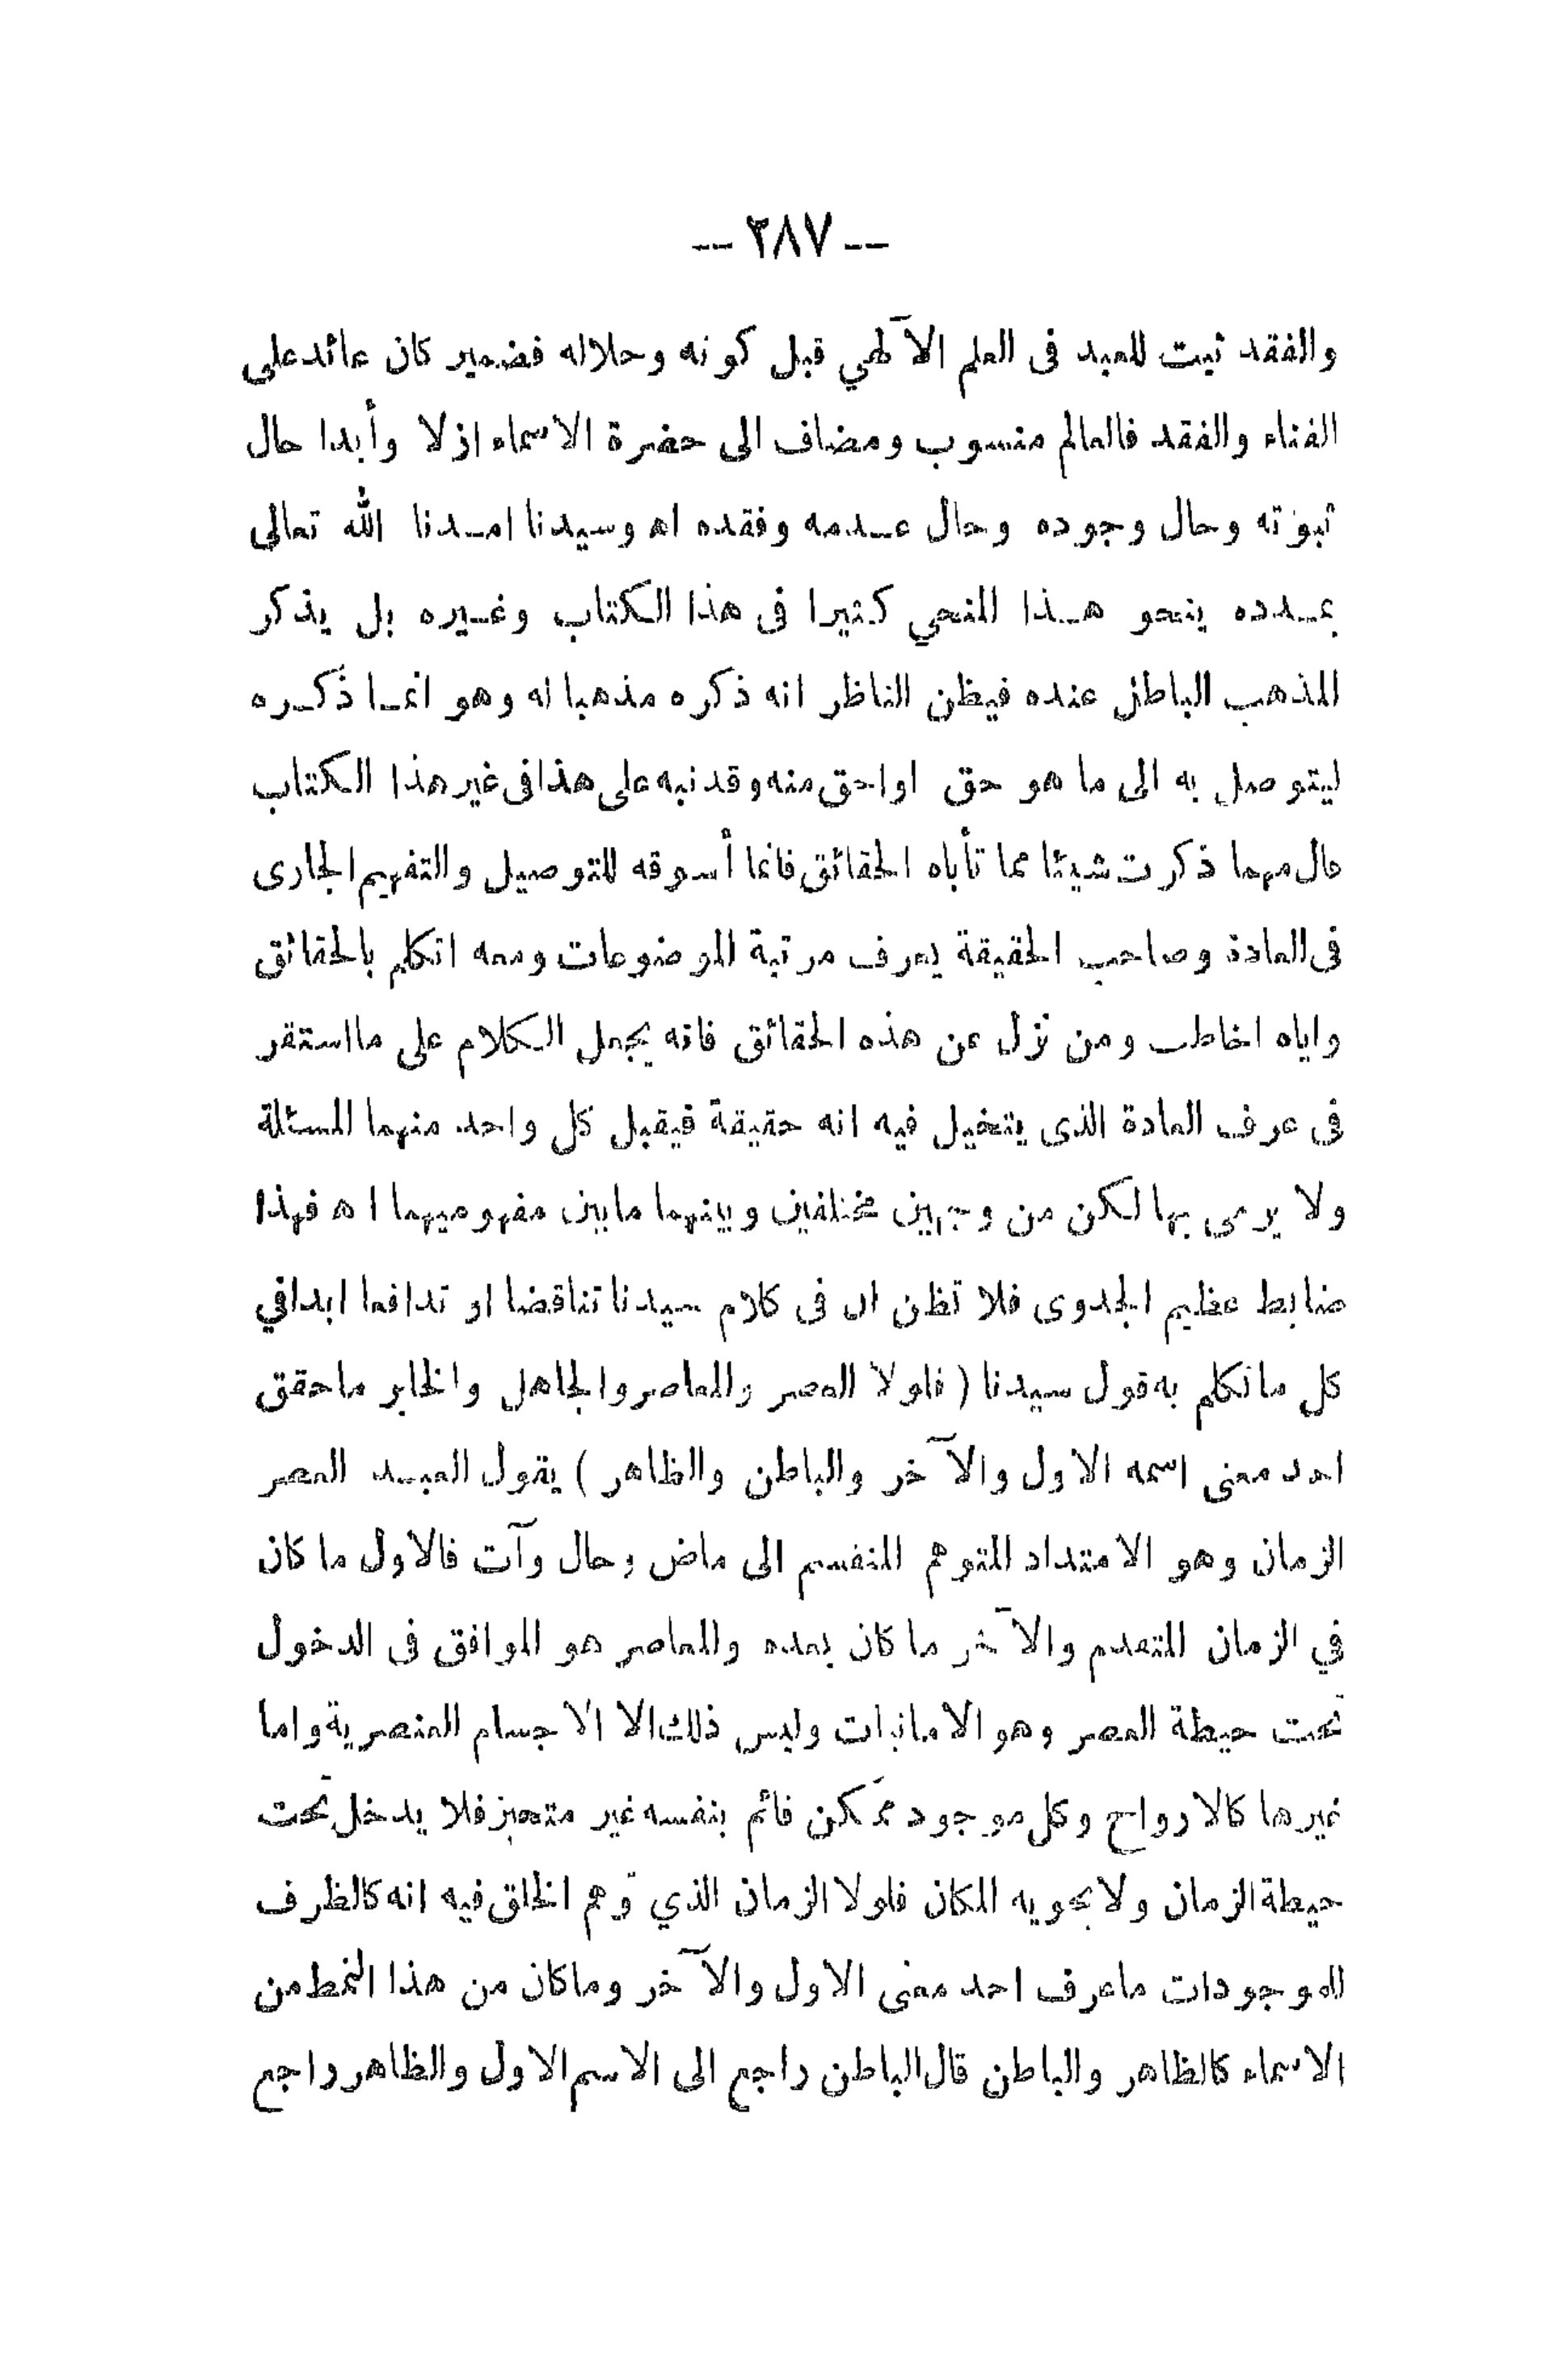 -- ٢٨٧ --
والفقد ثبت للعبد فى العلم الآلهي قبل كونه وحلاله فضمير كان عائد على
الفناء والفقد فالعالم منسوب ومضاف الى حضرة الاسماء ازلا وأبدا حال
ثبوته وحال وجوده وحال عدمه وفقده اه وسيدنا امدنا الله تعالى
بمدده ينحو هذا المنحي كثيرا فى هذا الكتاب وغيره بل يذكر
المذهب الباطل عنده فيظن الناظر انه ذكره مذهبا له وهو انما ذكره
ليتوصل به الى ما هو حق او احق منه وقد نبه على هذا فى غير هذا الكتاب
قال مهما ذكرت شيئا مما تأباه الحقائق فانما أسوقه للتوصيل والتفهيم الجارى
فى العادة وصاحب الحقيقة يعرف مرتبة الموضوعات ومعه اتكلم بالحقائق
واياه اخاطب ومن نزل عن هذه الحقائق فانه يجعل الكلام على ما استقر
فى عرف العادة الذى يتخيل فيه انه حقيقة فيقبل كل واحد منهما المسئلة
ولا يرمى بها لكن من وجهين مختلفين وبينهما ما بين مفهوميهما اه فهذا
ضابط عظيم الجدوى فلا تظن ان فى كلام سيدنا تناقضا او تدافعا ابدا في
كل ما تكلم به قول سيدنا ( فلولا العصر والمعاصر والجاهل والخابر ما حقق
احد معنى اسمه الاول والآخر والباطن والظاهر ) يقول العبد العصر
الزمان وهو الامتداد المتوهم المنقسم الى ماض وحال وآت فالاول ما كان
في الزمان المتقدم والآخر ما كان بعده والمعاصر هو الموافق فى الدخول
تحت حيطة العصر وهو الامانيات وليس ذلك الا الاجسام العنصرية واما
غيرها كالارواح وكل موجود ممكن قائم بنفسه غير متحيز فلا يدخل تحت
حيطة الزمان ولا يحويه المكان فلولا الزمان الذي توهم الخلق فيه انه كالظرف
للموجودات ما عرف احد معنى الاول والآخر وما كان من هذا النمط من
الاسماء كالظاهر والباطن قال الباطن راجع الى الاسم الاول والظاهر راجع